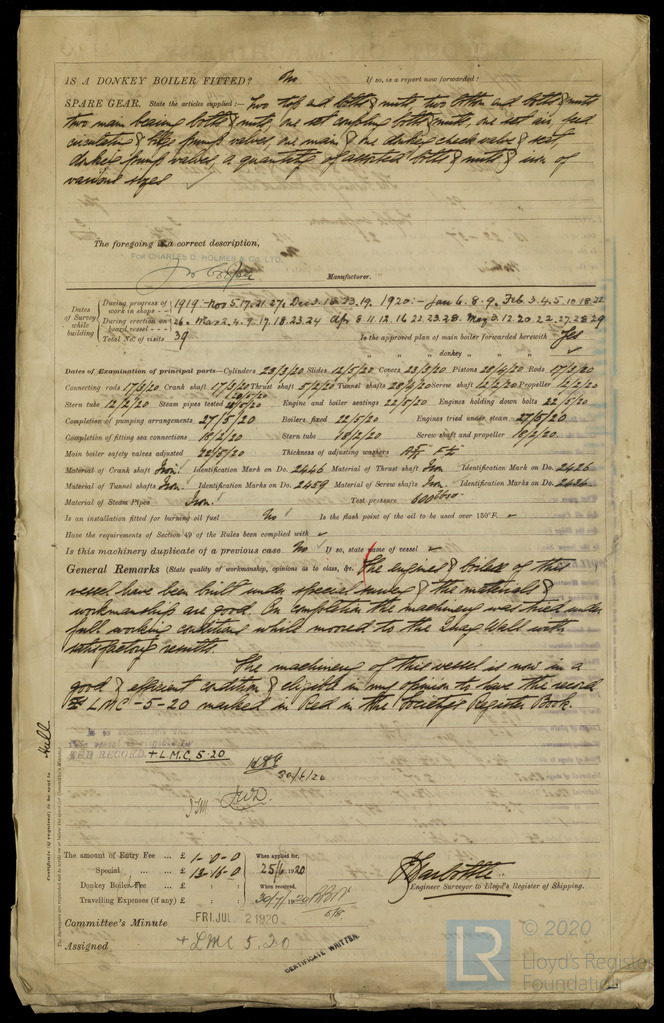 IS A DONKEY BOILER FITTED? No If so, is a report now forwarded?
SPARE GEAR. State the articles supplied:— Two top end bolts & nuts, two bottom end bolts & nuts
two main bearing bolts & nuts, one set coupling bolts & nuts, one set air, feed
circulating & bilge pump valves, one main & one donkey check valve & seat,
donkey pump valves, a quantity of assorted bolts & nuts & iron of
various sizes
The foregoing is a correct description,
FOR CHARLES D. HOLMES & CO. LTD.
Manufacturer.
Dates of Survey while building
During progress of work in shops - - 1919 - Nov 5. 17. 21. 27. Dec 3. 18. 23. 19. 1920:- Jan 6. 8. 9. Feb 3. 4. 5. 10. 18. 22
During erection on board vessel - - - 26. Mar 2. 4. 9. 17. 18. 23. 24 Apr 8. 11. 12. 16. 22. 23. 28. May 3. 12. 20. 22. 27. 28. 29
Total No. of visits 39 Is the approved plan of main boiler forwarded herewith Yes
" " " donkey " " "
Dates of Examination of principal parts—Cylinders 23/3/20 Slides 12/5/20 Covers 23/3/20 Pistons 28/4/20 Rods 17/3/20
Connecting rods 17/3/20 Crank shaft 17/3/20 Thrust shaft 5/2/20 Tunnel shafts 28/4/20 Screw shaft 12/2/20 Propeller 12/2/20
Stern tube 12/2/20 Steam pipes tested 20/5/20 Engine and boiler seatings 22/5/20 Engines holding down bolts 22/5/20
Completion of pumping arrangements 27/5/20 Boilers fixed 22/5/20 Engines tried under steam 27/5/20
Completion of fitting sea connections 18/2/20 Stern tube 18/2/20 Screw shaft and propeller 18/2/20
Main boiler safety valves adjusted 22/5/20 Thickness of adjusting washers
Material of Crank shaft Iron Identification Mark on Do. 2446 Material of Thrust shaft Iron Identification Mark on Do. 2426
Material of Tunnel shafts Iron Identification Marks on Do. 2459 Material of Screw shafts Iron Identification Marks on Do.
Material of Steam Pipes Iron Test pressure 600 lbs
Is an installation fitted for burning oil fuel No Is the flash point of the oil to be used over 150°F.
Have the requirements of Section 49 of the Rules been complied with
Is this machinery duplicate of a previous case No If so, state name of vessel
General Remarks (State quality of workmanship, opinions as to class, &c. The engines & boiler of this
vessel have been built under special survey & the materials &
workmanship are good. On completion the machinery was tried under
full working conditions while moored to the Quay Wall with
satisfactory results.
The machinery of this vessel is now in a
good & efficient condition & eligible in my opinion to have the record
+ LMC -5-20 marked in Red in the Society's Register Book.
THE RECORD + L.M.C. 5.20
30/6/20
JWD
Certificate (if required) to be sent to Hull
The amount of Entry Fee ... £ 1-0-0 When applied for,
Special ... £ 13-16-0 25/6 1920
Donkey Boiler Fee ... £ : : When received,
Travelling Expenses (if any) £ : : 30/7/1920
Engineer Surveyor to Lloyd's Register of Shipping.
Committee's Minute FRI. JUL 2 1920
Assigned + LMC 5.20
CERTIFICATE WRITTEN.
© 2020
LR
Lloyd's Register
Foundation